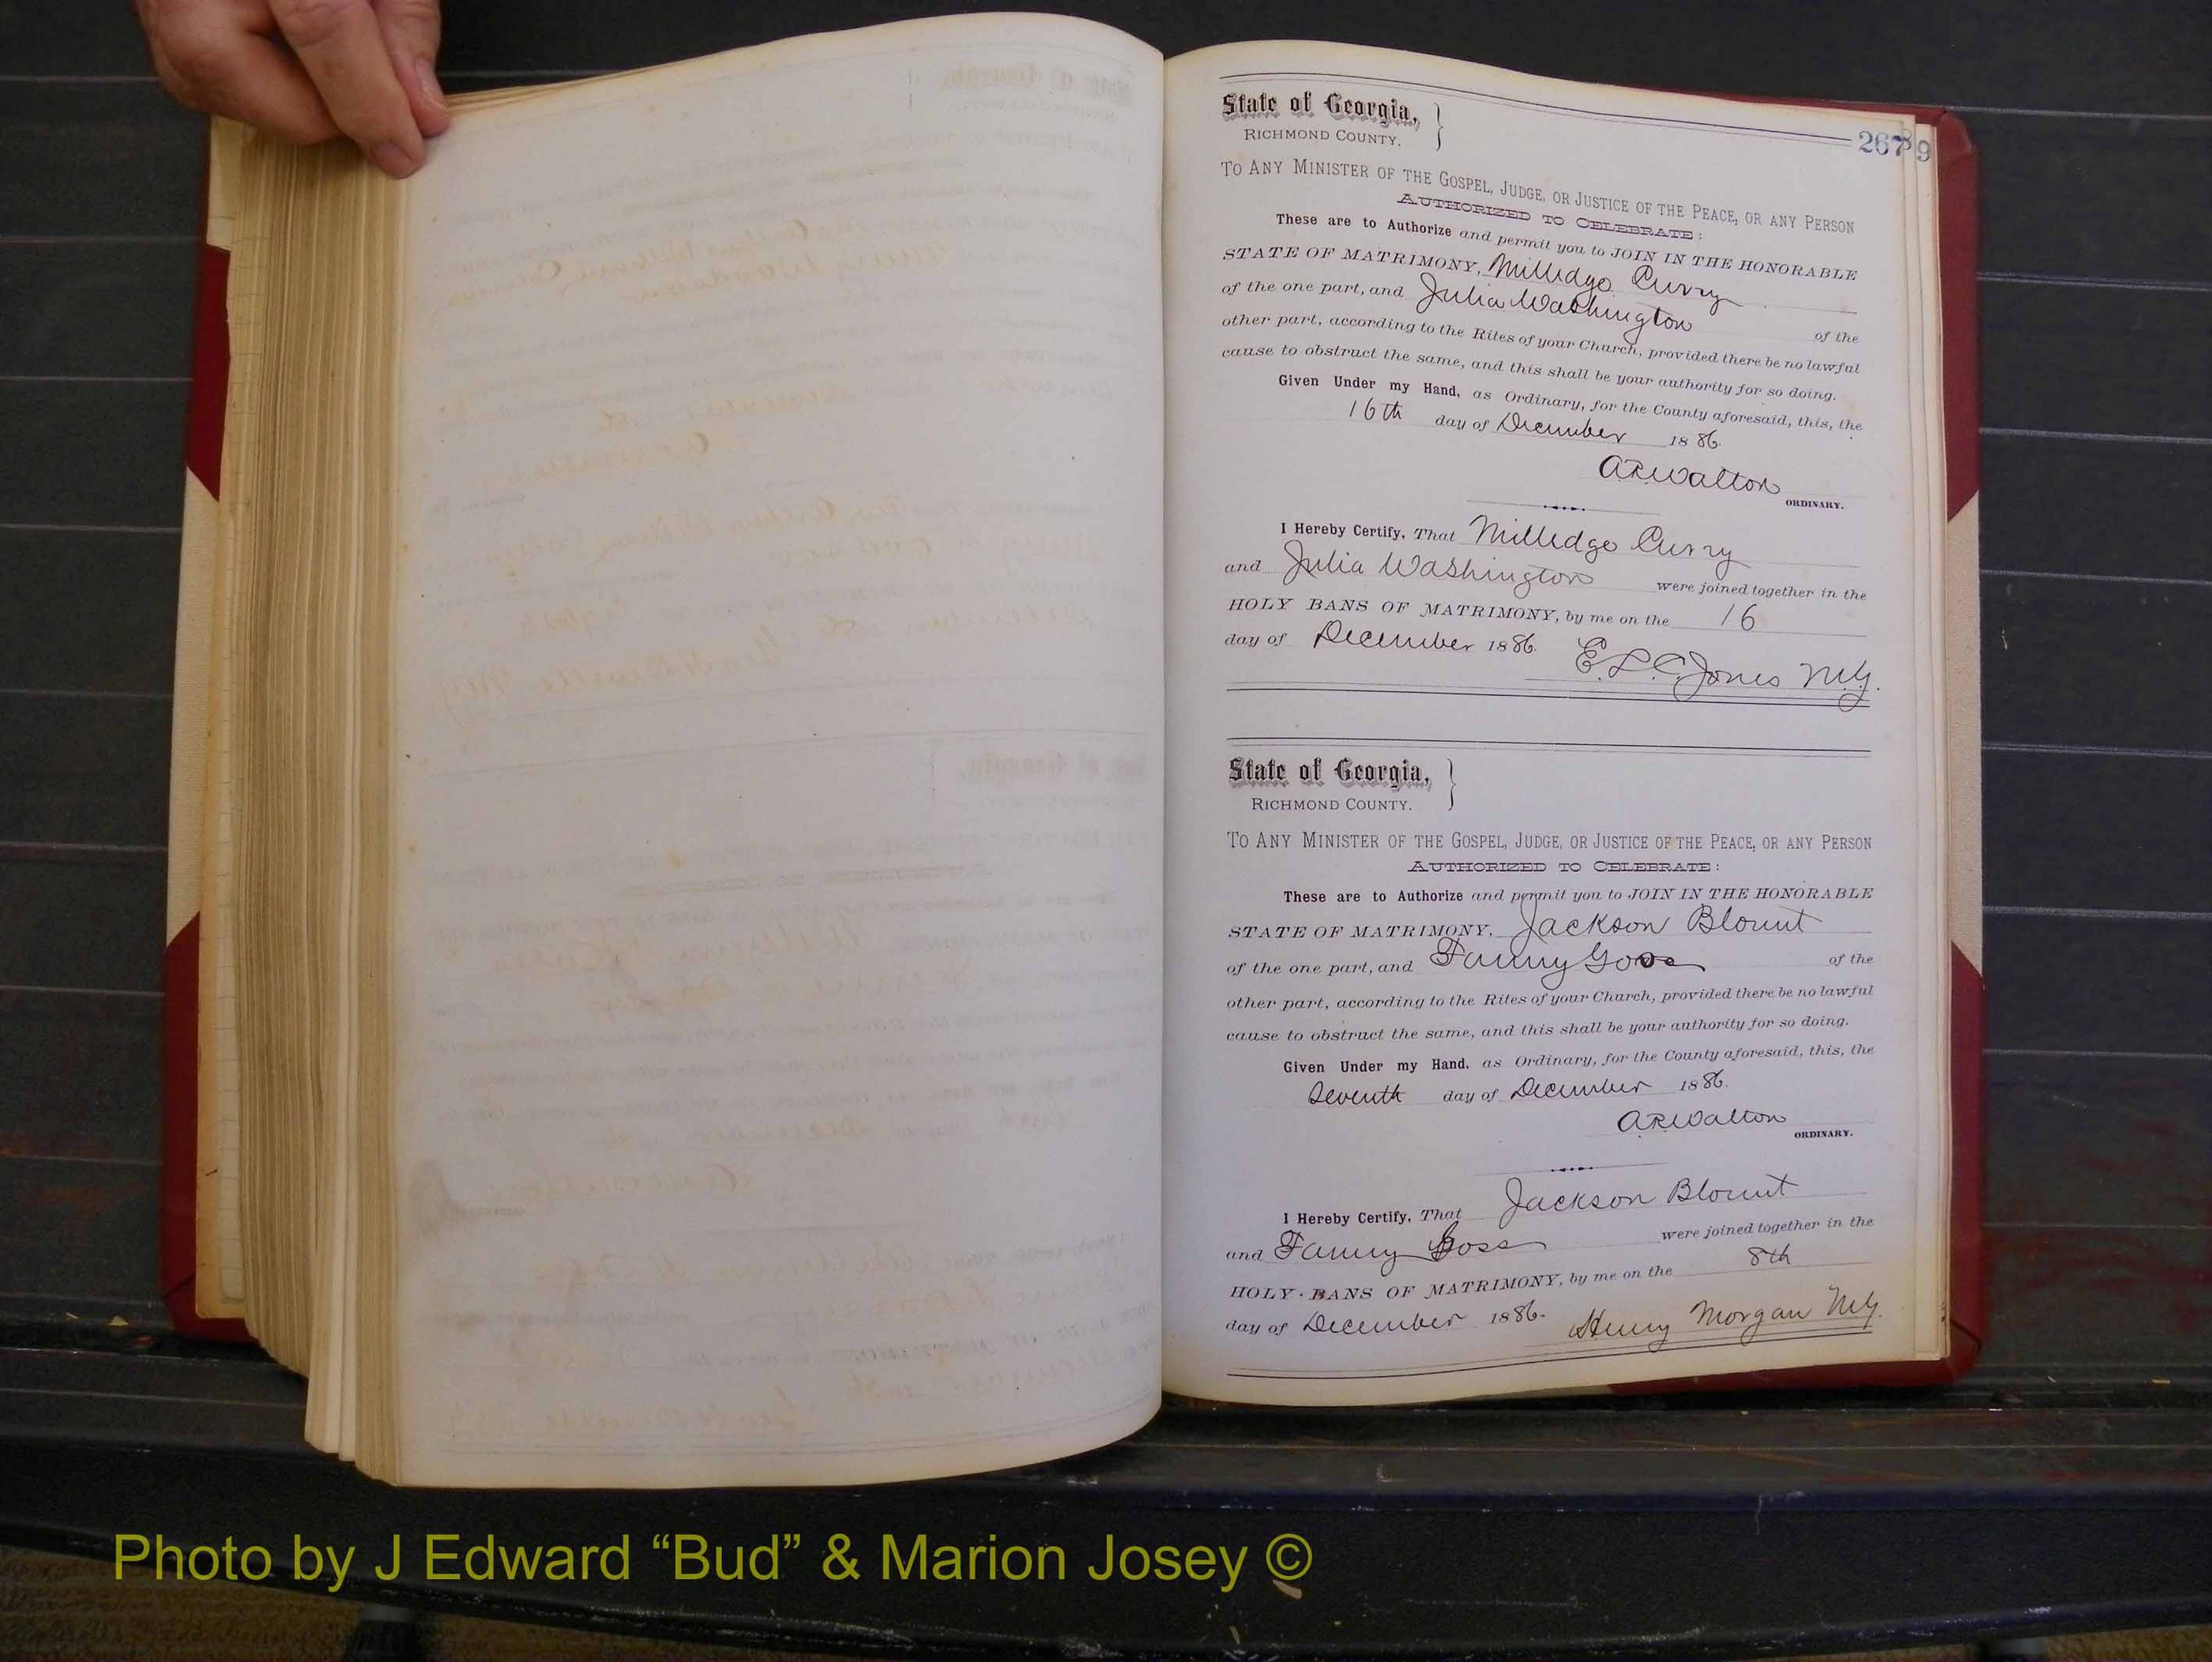 267
9
State of Georgia,
RICHMOND COUNTY.
TO ANY MINISTER OF THE GOSPEL, JUDGE, OR JUSTICE OF THE PEACE, OR ANY PERSON
AUTHORIZED TO CELEBRATE:
These are to Authorize and permit you to JOIN IN THE HONORABLE
STATE OF MATRIMONY, Milledge Curry
of the one part, and Julia Washington of the
other part, according to the Rites of your Church, provided there be no lawful
cause to obstruct the same, and this shall be your authority for so doing.
Given Under my Hand, as Ordinary, for the County aforesaid, this, the
16th day of December 1886.
A R Walton
ORDINARY.
I Hereby Certify, That Milledge Curry
and Julia Washington were joined together in the
HOLY BANS OF MATRIMONY, by me on the 16
day of December 1886. E. L. C. Jones M.G.
State of Georgia,
RICHMOND COUNTY.
TO ANY MINISTER OF THE GOSPEL, JUDGE, OR JUSTICE OF THE PEACE, OR ANY PERSON
AUTHORIZED TO CELEBRATE:
These are to Authorize and permit you to JOIN IN THE HONORABLE
STATE OF MATRIMONY, Jackson Blount
of the one part, and Fanny Goss of the
other part, according to the Rites of your Church, provided there be no lawful
cause to obstruct the same, and this shall be your authority for so doing.
Given Under my Hand, as Ordinary, for the County aforesaid, this, the
Seventh day of December 1886.
A R Walton
ORDINARY.
I Hereby Certify, That Jackson Blount
and Fanny Goss were joined together in the
HOLY BANS OF MATRIMONY, by me on the 8th
day of December 1886. Henry Morgan M.G.
Photo by J Edward “Bud” & Marion Josey ©